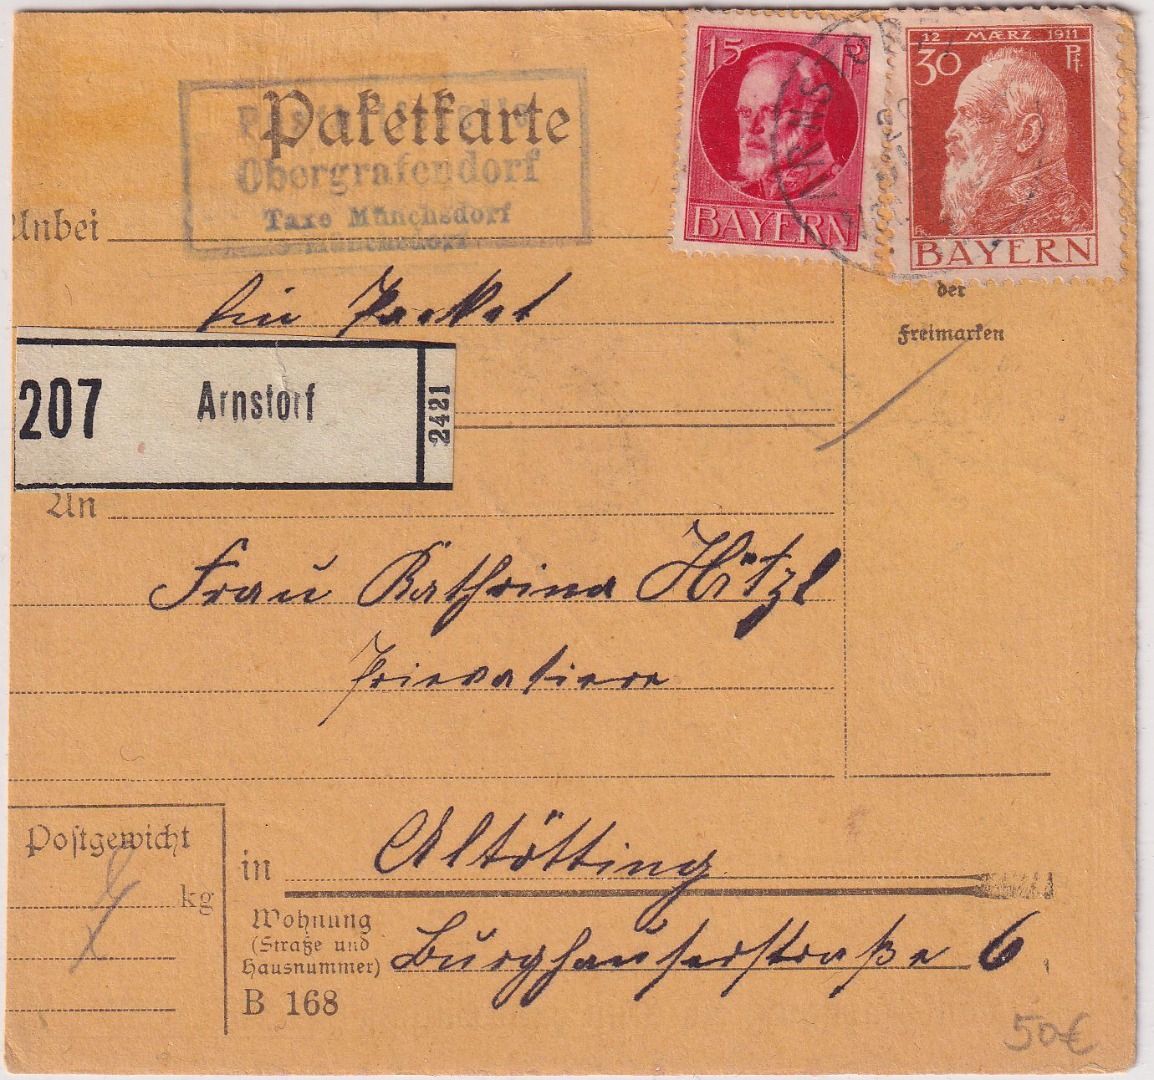 15 Pf
BAYERN
12 MÆRZ 1911
30 Pf.
BAYERN
Paketkarte
Obergrafendorf
Taxe Münchsdorf
Anbei
ein Packet
der
Freimarken
207 Arnstorf 2421
An
Frau Kathrina Hitzl
Privatiere
Postgewicht
kg
in Altötting
Wohnung
(Straße und
Hausnummer)
Burghauserstraße 6
B 168
50€